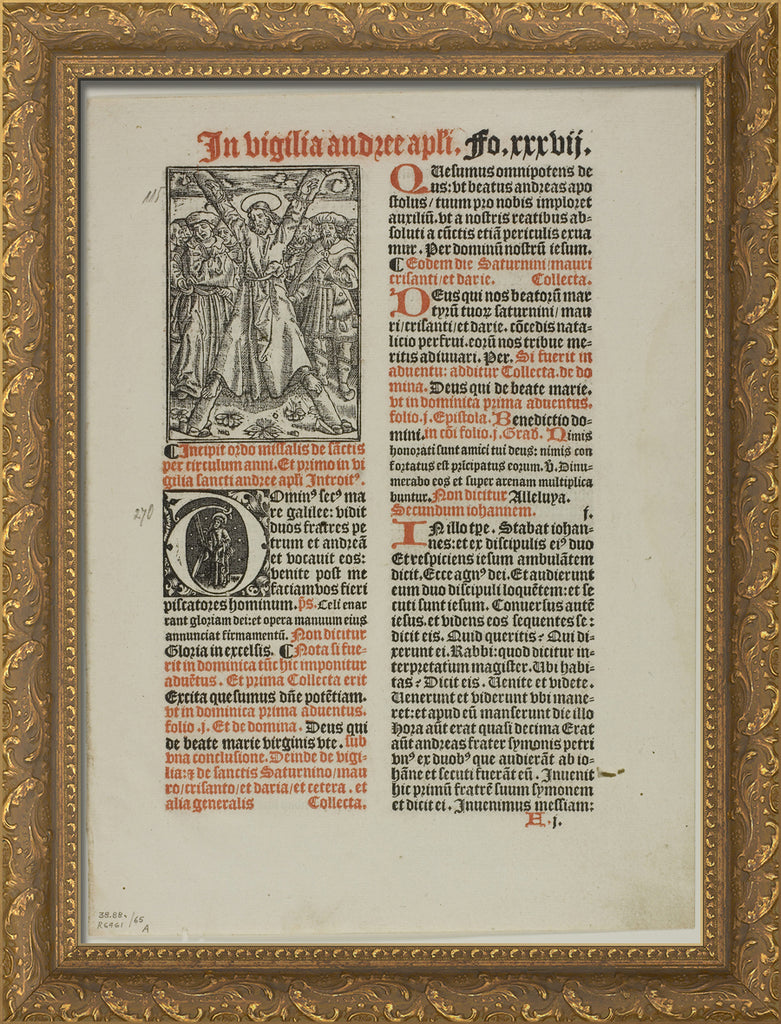 In vigilia andree apľi. Fo.xxxvij.
115
¶Incipit ordo missalis de sāctis
per circulum anni. Et primo in vi
gilia sancti andree apľi Introitꝰ.
270
Ominꝰ secꝰ ma
re galilee: vidit
duos fratres pe
trum et andreā
et vocauit eos:
venite post me
faciam vos fieri
piscatores hominum. p̄s. Celi enar
rant gloriam dei: et opera manuum eius
annunciat firmamentū. Non dicitur
Gloria in excelsis. ¶Nota si fue-
rit in dominica tūc hic imponitur
aduētus. Et prima Collecta erit
Excita quesumus dn̄e potētiam.
vt in dominica prima aduentus.
folio .j. Et de domina. Deus qui
de beate marie virginis vte. sub
vna conclusione. Deinde de vigi-
lia: ⁊ de sanctis Saturnino/mau
ro/crisanto/et daria/et cetera. et
alia generalis Collecta.
QUesumus omnipotens de
us: vt beatus andreas apo
stolus/tuum pro nobis imploret
auxiliū. vt a nostris reatibus ab-
soluti a cūctis etiā periculis exua
mur. Per dominū nostrū iesum.
¶Eodem die Saturnini/mauri
crisanti/et darie. Collecta.
DEus qui nos beatorū mar
tyrū tuoꝝ saturnini/mau
ri/crisanti/et darie. cōcedis nata-
licio perfrui. eorū nos tribue me-
ritis adiuuari. Per. Si fuerit in
aduentu: additur Collecta. de do
mina. Deus qui de beate marie.
vt in dominica prima aduentus.
folio .j. Epistola. Benedictio do-
mini. in cōi folio .j. Grad. Nimis
honorati sunt amici tui deus: nimis con
fortatus est pricipatus eorum. ℣. Dinu-
merabo eos et super arenam multiplica
buntur. Non dicitur Alleluya.
Secundum iohannem. j.
IN illo tpe. Stabat iohan-
nes: et ex discipulis eiꝰ duo
Et respiciens iesum ambulātem
dicit. Ecce agnꝰ dei. Et audierunt
eum duo discipuli loquētem: et se
cuti sunt iesum. Conuersus autē
iesus. et videns eos sequentes se:
dicit eis. Quid queritis? Qui di-
xerunt ei. Rabbi: quod dicitur in-
terpretatum magister. Ubi habi-
tas? Dicit eis. Uenite et videte.
Uenerunt et viderunt vbi mane-
ret: et apud eū manserunt die illo
Hora aūt erat quasi decima Erat
aūt andreas frater symonis petri
vnꝰ ex duobꝰ que audierāt ab io-
hāne et secuti fuerāt eū. Inuenit
hic primū fratrē suum symonem
et dicit ei. Inuenimus messiam:
A.j.
38.88.
R6961/65
A